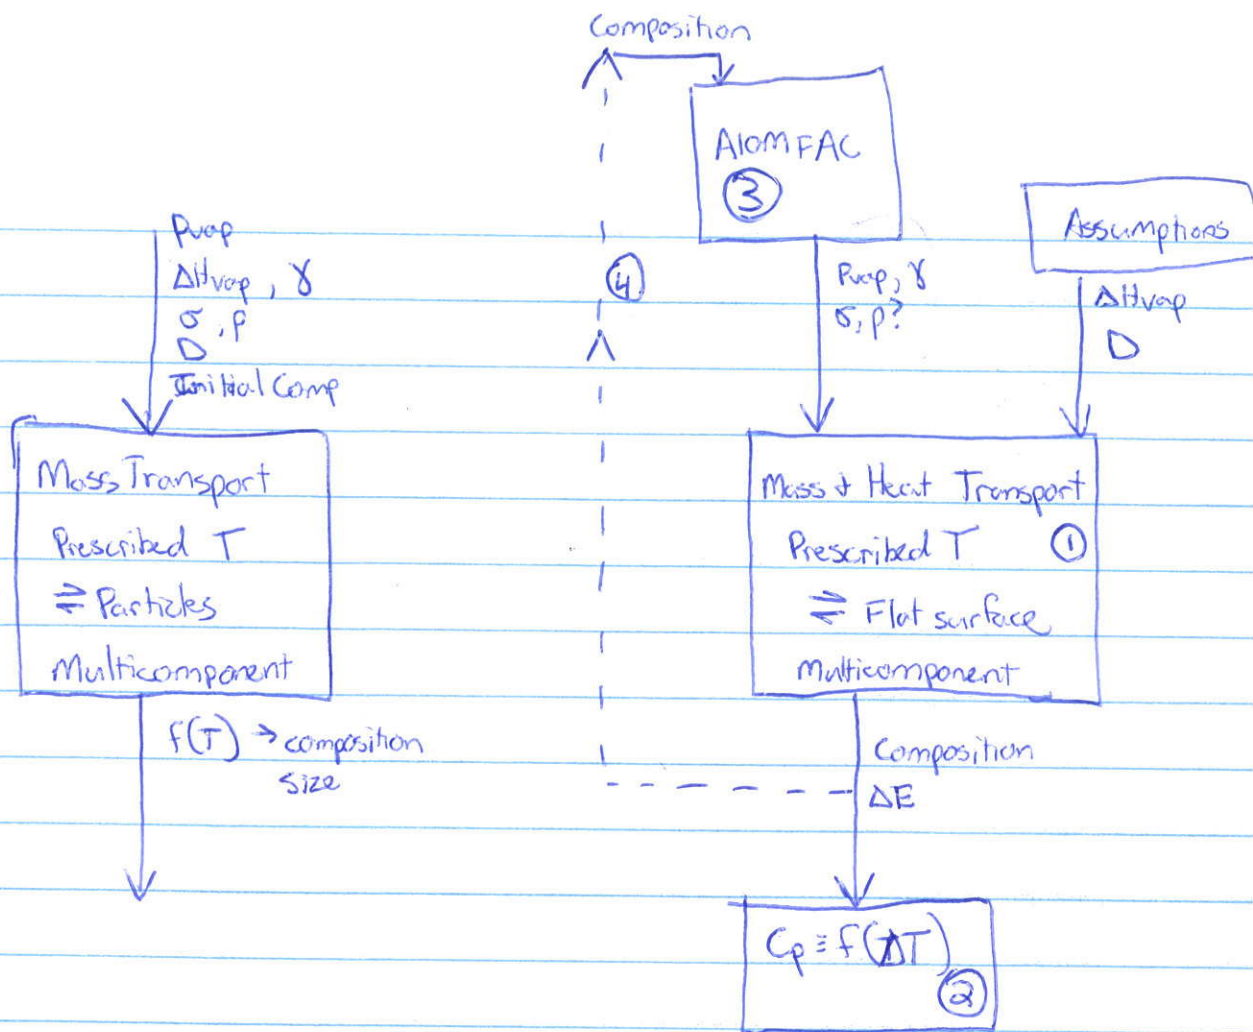 Composition
AIOMFAC
③
Assumptions
Pvap
ΔHvap, γ
σ, ρ
D
Initial Comp
④
Pvap, γ
σ, ρ?
ΔHvap
D
Mass Transport
Prescribed T
⇌ Particles
Multicomponent
Mass + Heat Transport
Prescribed T ①
⇌ Flat surface
Multicomponent
f(T) → composition
size
Composition
ΔE
Cp ≡ f(ΔT)
②